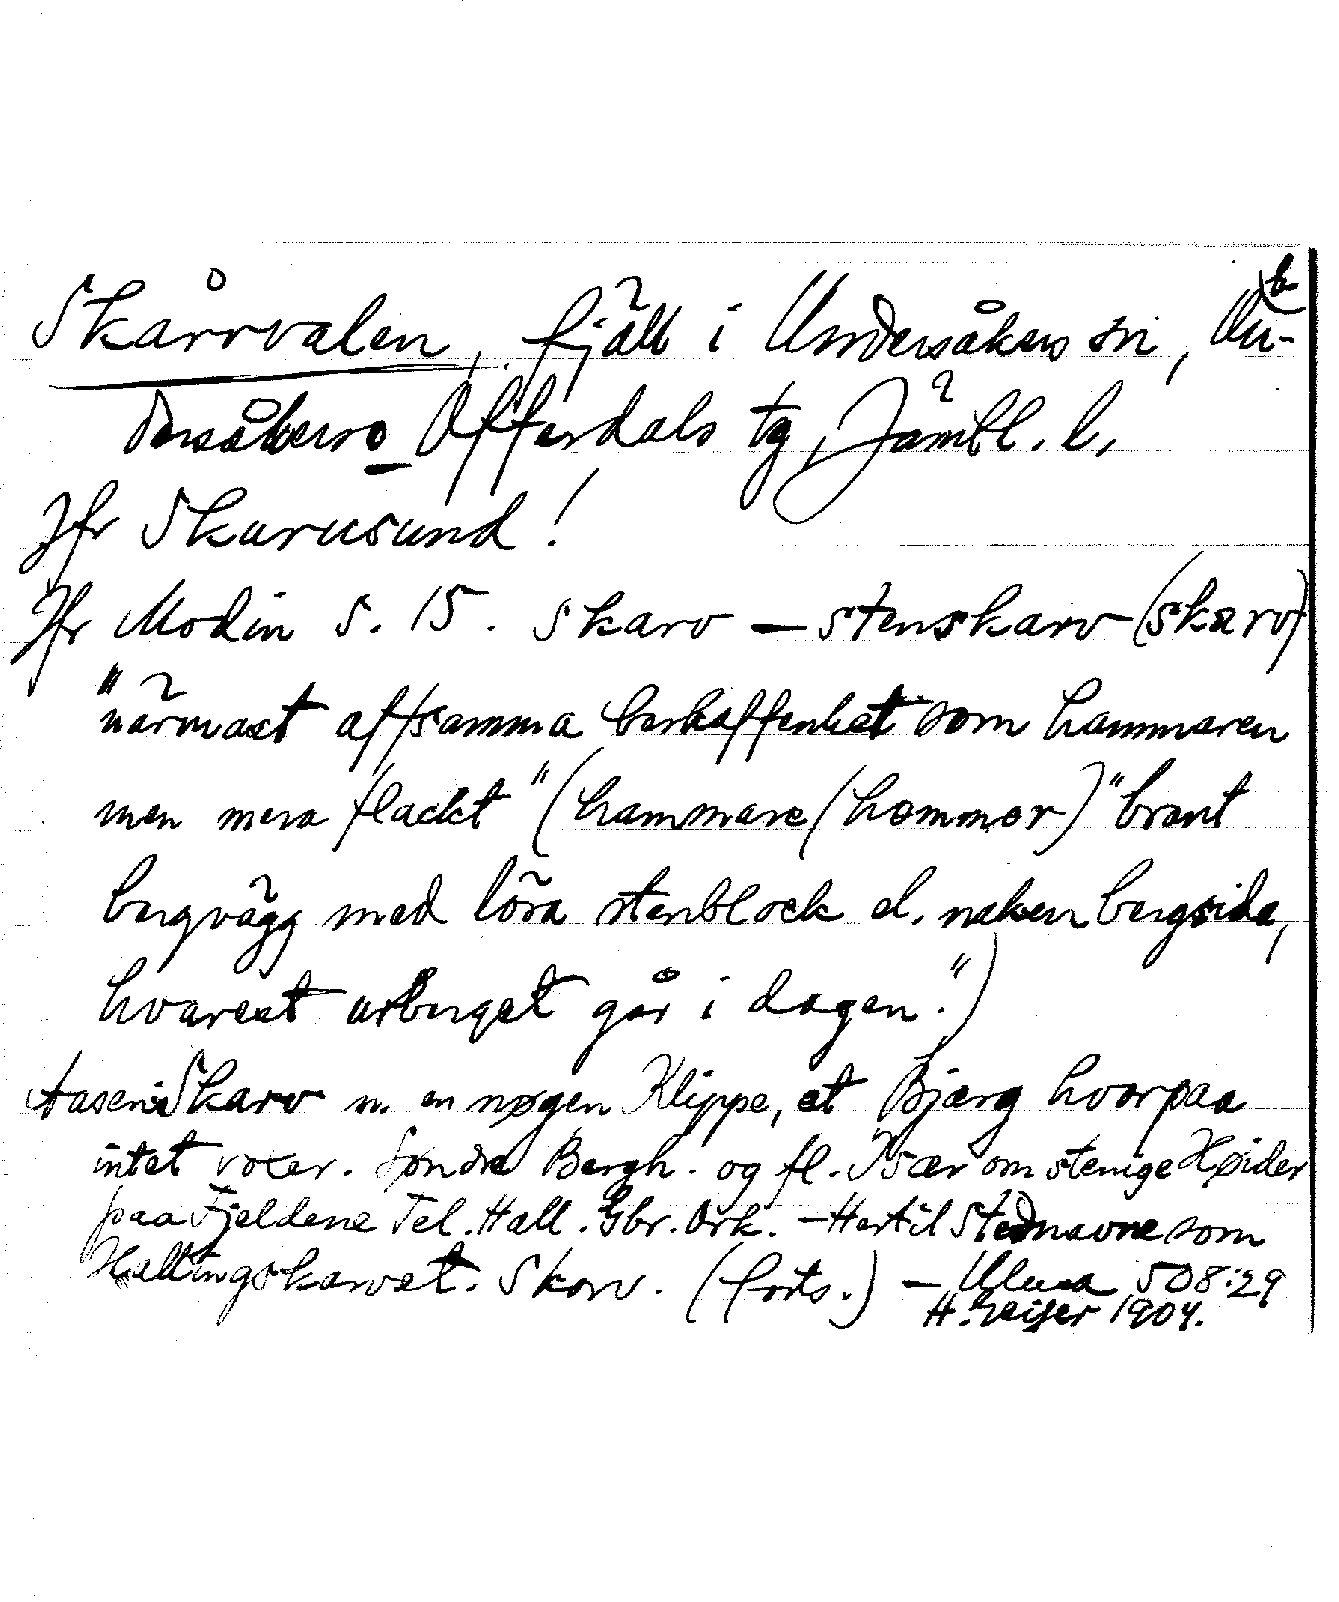 Skårvalen, fjäll i Undersåkers sn, Un-
dersåkers-Offerdals tg, Jämtl. l.
Jfr Skarusund!
Jfr Modin s. 15. skarv — stenskarv (skarv)
"närmast af samma beskaffenhet som hammaren
men mera flackt" (hammare (hommor) "brant
bergvägg med lösa stenblock el. naken bergsida,
hvarest urberget går i dagen.")
Aasen: Skarv m. en nøgen Klippe, et Bjærg hvorpaa
intet voxer. Søndre Bergh. og fl. Især om stenige Høider
paa Fjeldene Tel. Hall. Gbr. Ork. — Hertil Stednavne som
Hallingskarvet. Skorv. (forts.) — Uluå 508:29
H. Geijer 1904.